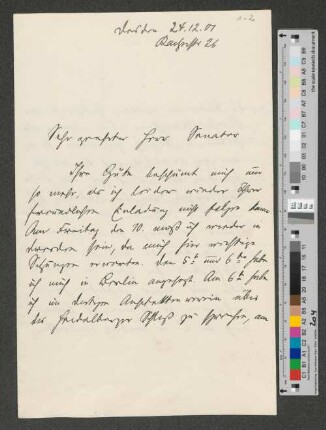 Dresden 24.12.01
Kaitzerstr 26
Sehr geehrter Herr Senator
Ihre Güte beschämt mich um
so mehr, als ich leider wieder Ihrer
freundlichen Einladung nicht folgen kann
Am Freitag den 10. muß ich wieder in
Dresden sein, da mich hier wichtige
Sitzungen erwarten. Den 5t und 6ten habe
ich mich in Berlin angesagt. Am 6ten habe
ich im dortigen Architektenverein über
das Heidelberger Schloß zu sprechen, am